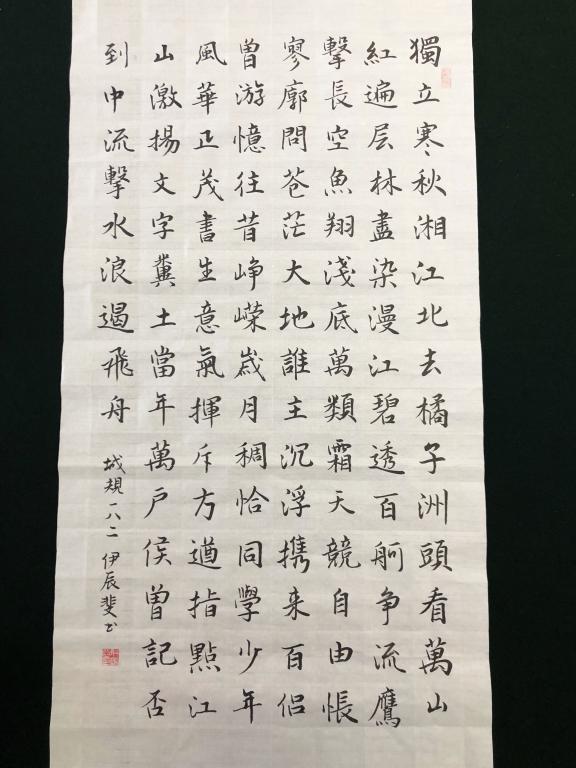 獨立寒秋湘江北去橘子洲頭看萬山
紅遍层林盡染漫江碧透百舸争流鷹
擊長空魚翔淺底萬類霜天競自由悵
寥廓問苍茫大地誰主沉浮携来百侣
曾游憶往昔峥嵘歲月稠恰同學少年
風華正茂書生意氣揮斥方遒指點江
山激揚文字糞土當年萬户侯曾記否
到中流擊水浪遏飛舟
城規一八二 伊辰斐书